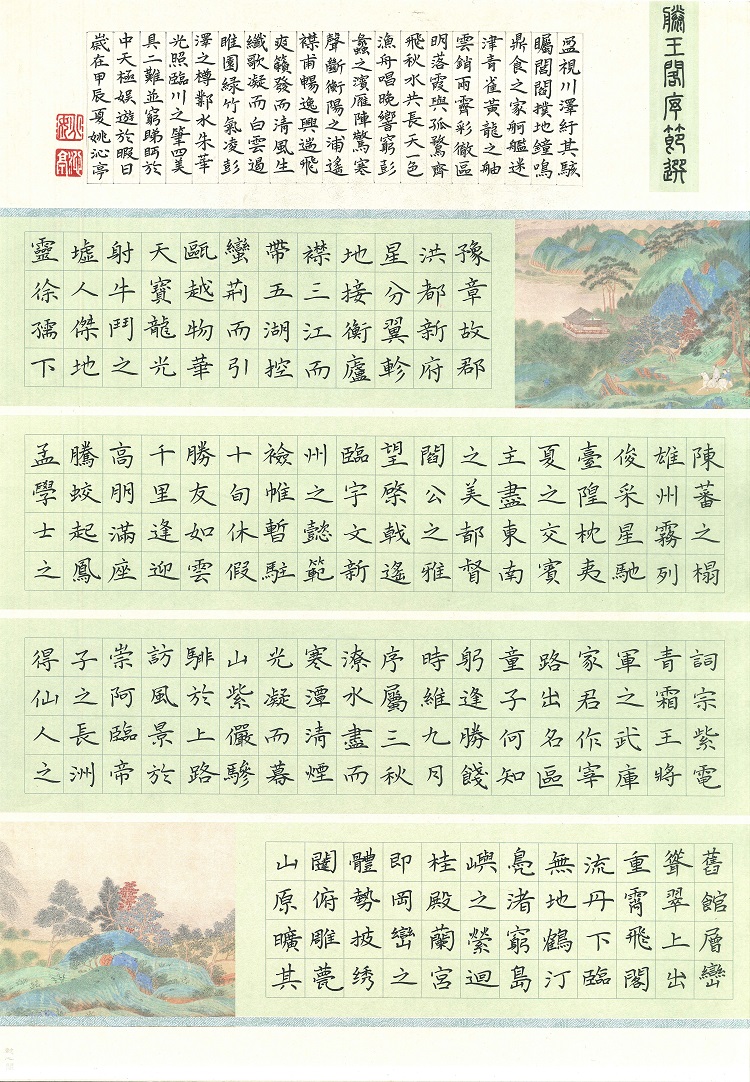 滕王閣序節選
豫章故郡
洪都新府
星分翼軫
地接衡廬
襟三江而
帶五湖控
蠻荆而引
甌越物華
天寶龍光
射牛鬥之
墟人傑地
靈徐孺下
陳蕃之榻
雄州霧列
俊采星馳
臺隍枕夷
夏之交賓
主盡東南
之美都督
閻公之雅
望棨戟遙
臨宇文新
州之懿範
襜帷暫駐
十旬休假
勝友如雲
千里逢迎
高朋滿座
騰蛟起鳳
孟學士之
詞宗紫電
青霜王將
軍之武庫
家君作宰
路出名區
童子何知
躬逢勝餞
時維九月
序屬三秋
潦水盡而
寒潭清煙
光凝而暮
山紫儼驂
騑於上路
訪風景於
崇阿臨帝
子之長洲
得仙人之
舊館層巒
聳翠上出
重霄飛閣
流丹下臨
無地鶴汀
鳧渚窮島
嶼之縈迴
桂殿蘭宮
即岡巒之
體勢披绣
闥俯雕甍
山原曠其
盈視川澤紆其駭
矚閭閻撲地鐘鳴
鼎食之家舸艦迷
津青雀黃龍之舳
雲銷雨霽彩徹區
明落霞與孤鶩齊
飛秋水共長天一色
漁舟唱晚響窮彭
蠡之濱雁陣驚寒
聲斷衡陽之浦遙
襟甫暢逸興遄飛
爽籟發而清風生
纖歌凝而白雲遏
睢園綠竹氣凌彭
澤之樽鄴水朱華
光照臨川之筆四美
具二難並窮睇眄於
中天極娛遊於暇日
歲在甲辰夏姚沁亭